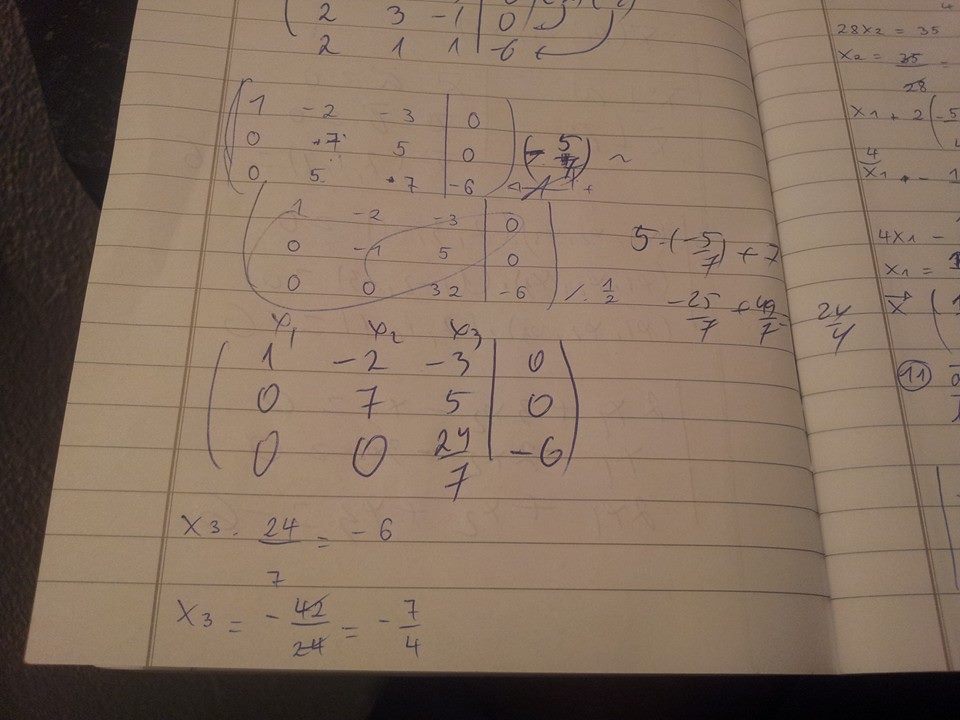 2 3 -1 | 0
2 1 1 | -6
1 -2 -3 | 0
0 +7 5 | 0
0 5 7 | -6
(-5/7) ~
1 -2 -3 | 0
0 -1 5 | 0
0 0 32 | -6 /. 1/2
5·(-5/7) + 7
-25/7 + 49/7 24/7
x1 x2 x3
1 -2 -3 | 0
0 7 5 | 0
0 0 24/7 | -6
x3 · 24/7 = -6
x3 = -42/24 = -7/4
28x2 = 35
x2 = 35/28 =
x1 + 2(-5
4x1 -
x1 =
x (
11